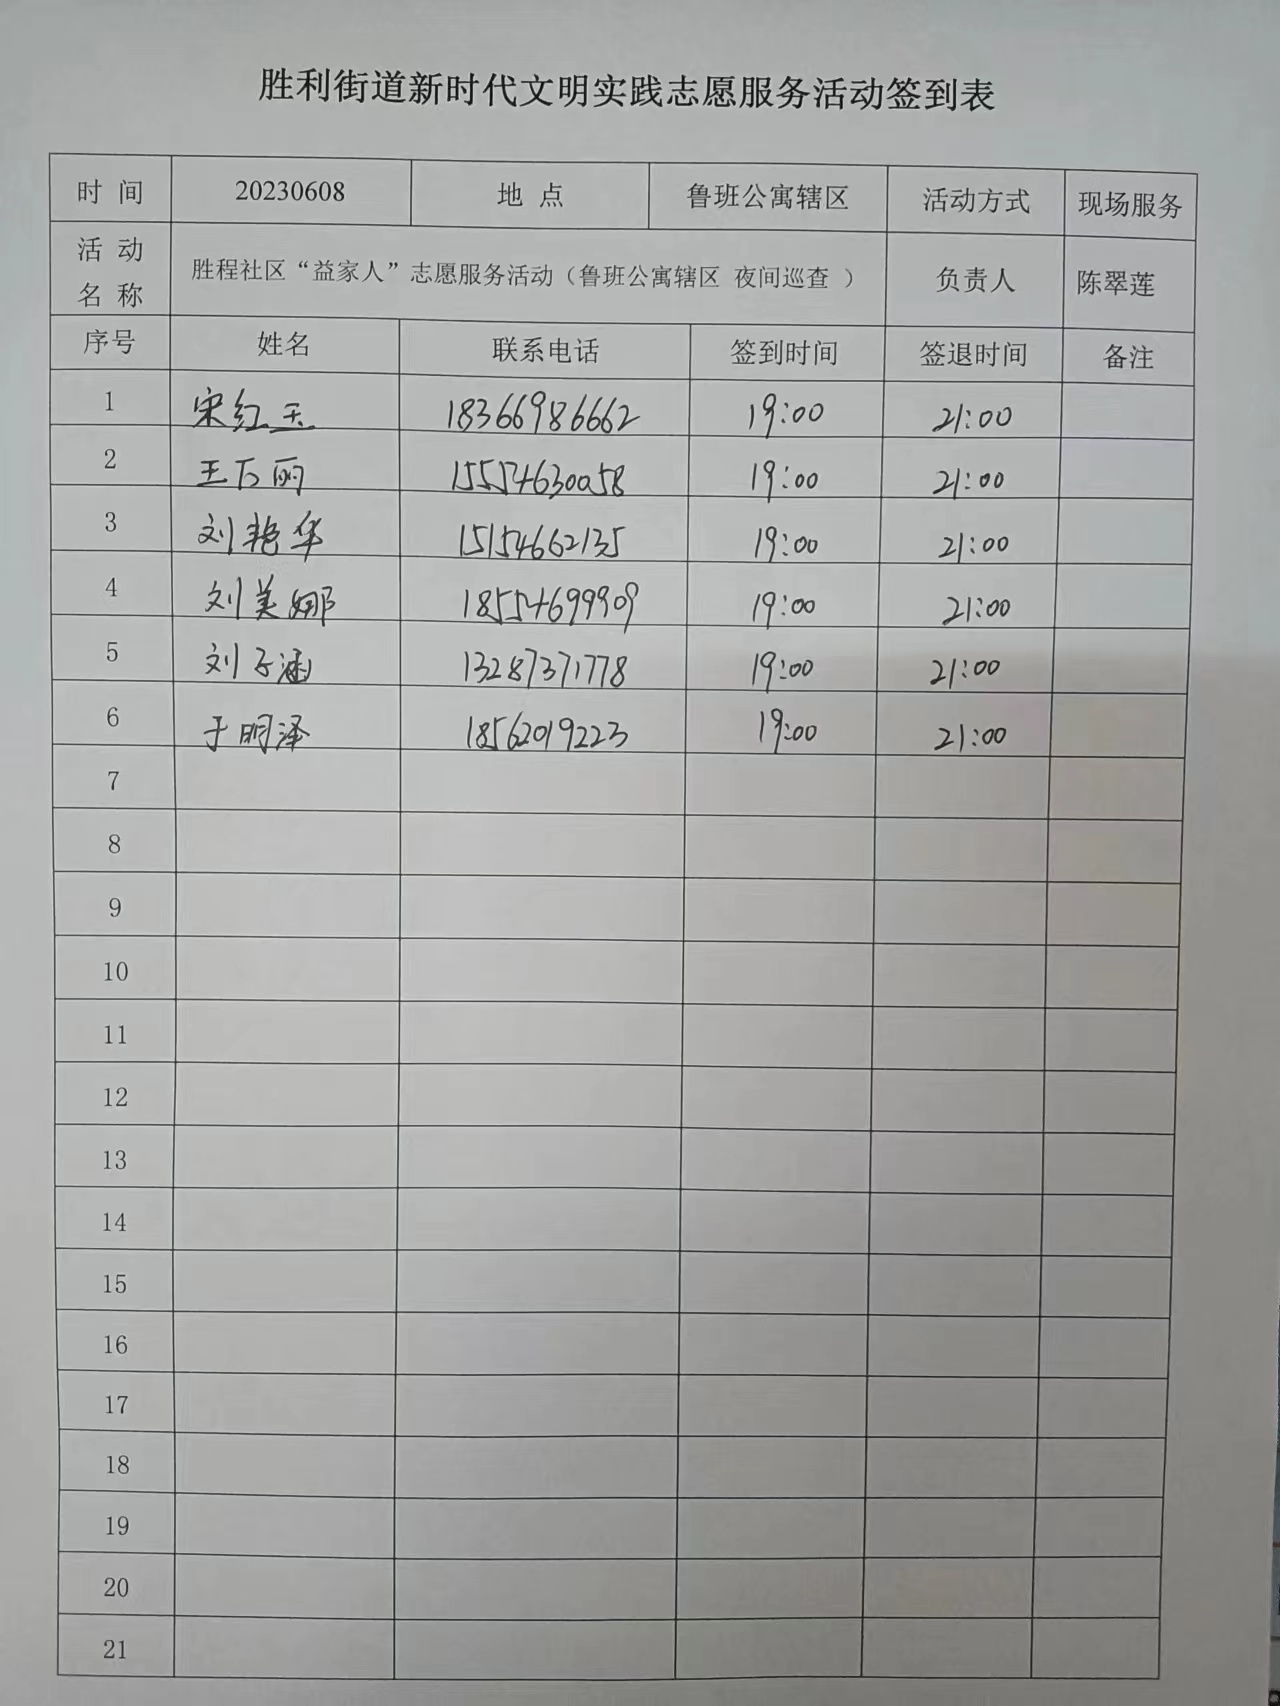 胜利街道新时代文明实践志愿服务活动签到表
时 间 20230608 地 点 鲁班公寓辖区 活动方式 现场服务
活 动 名 称 胜程社区“益家人”志愿服务活动（鲁班公寓辖区 夜间巡查 ） 负责人 陈翠莲
序号 姓名 联系电话 签到时间 签退时间 备注
1 宋红玉 18366986662 19:00 21:00
2 王万丽 15554630058 19:00 21:00
3 刘艳华 15154662135 19:00 21:00
4 刘美娜 18554699909 19:00 21:00
5 刘子涵 13287371778 19:00 21:00
6 于明泽 18562019223 19:00 21:00
7
8
9
10
11
12
13
14
15
16
17
18
19
20
21